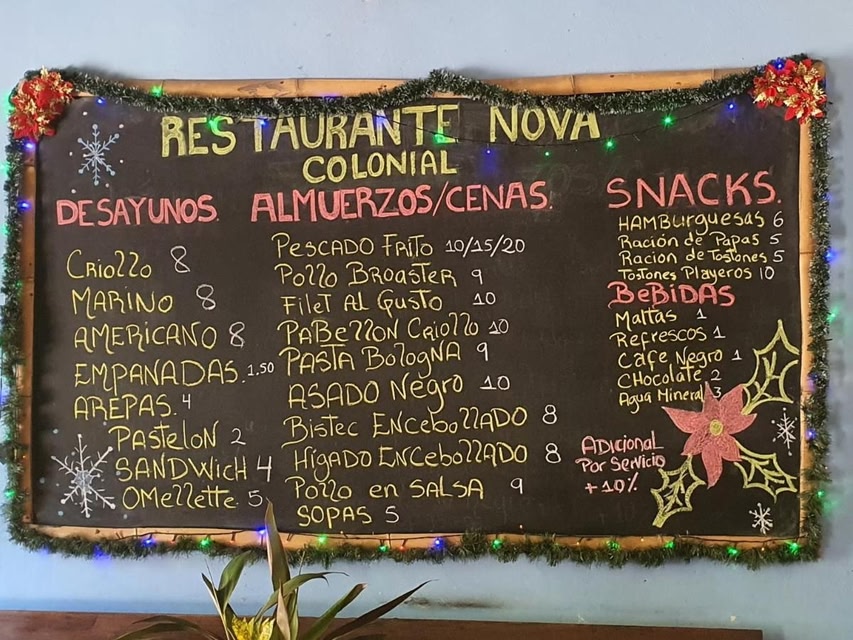 RESTAURANTE NOVA
COLONIAL
DESAYUNOS
Criollo 8
MARINO 8
AMERICANO 8
EMPANADAS. 1.50
AREPAS. 4
PASTELON 2
SANDWicH 4
OMellette 5
ALMUERZOS/CENAS.
PESCADO FriTO 10/15/20
Pollo BroasTER 9
FileT AL GusTO 10
PABellON Criollo 10
PASTA BologNA 9
ASADO Negro 10
BisTec ENCebollADO 8
HígADO ENCebollADO 8
Pollo en SALSA 9
SOPAS 5
SNACKS.
HAMBurguesas 6
Ración de PaPas 5
Racion de TosTones 5
TosTones PlAyeros 10
BeBiDAS
MalTas 1
RefresCos 1
Cafe Negro 1
CHocolaTe 2
Agua Mineral 3
ADicional
Por Servicio
+10%